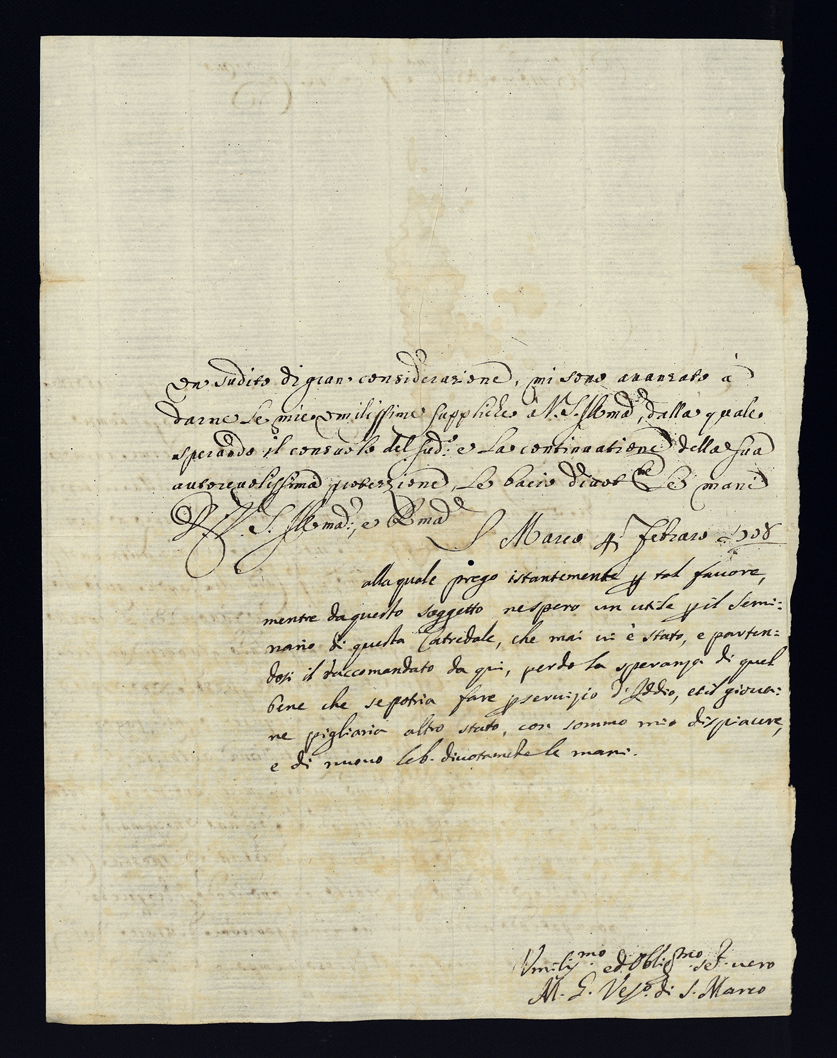 un sudito di gran considerazione, mi sono avanzato à
darne le mie umilissime suppliche à V. S. Illma, dalla quale
sperando il consuolo del sud.º e la continuatione della sua
autorevolissima protezzione, le bacio divot.te le mani
D V. S. Illma, e Rma
S. Marco 4 Febraro 1708
alla quale prego istantemente p tal favore,
mentre da questo soggetto ne spero un utile p il Semi:
nario di questa Catredale, che mai vi è stato, e parten:
dosi il raccomandato da qui, perdo la speranza di quel
bene che se potria fare p servizio d'Iddio, et il giova:
ne pigliaria altro stato, con sommo mio dispiacere,
e di nuovo le b. divotamte le mani.
Umiliss.mo ed Oblig.mo se.r vero
M. Ves.º di S. Marco